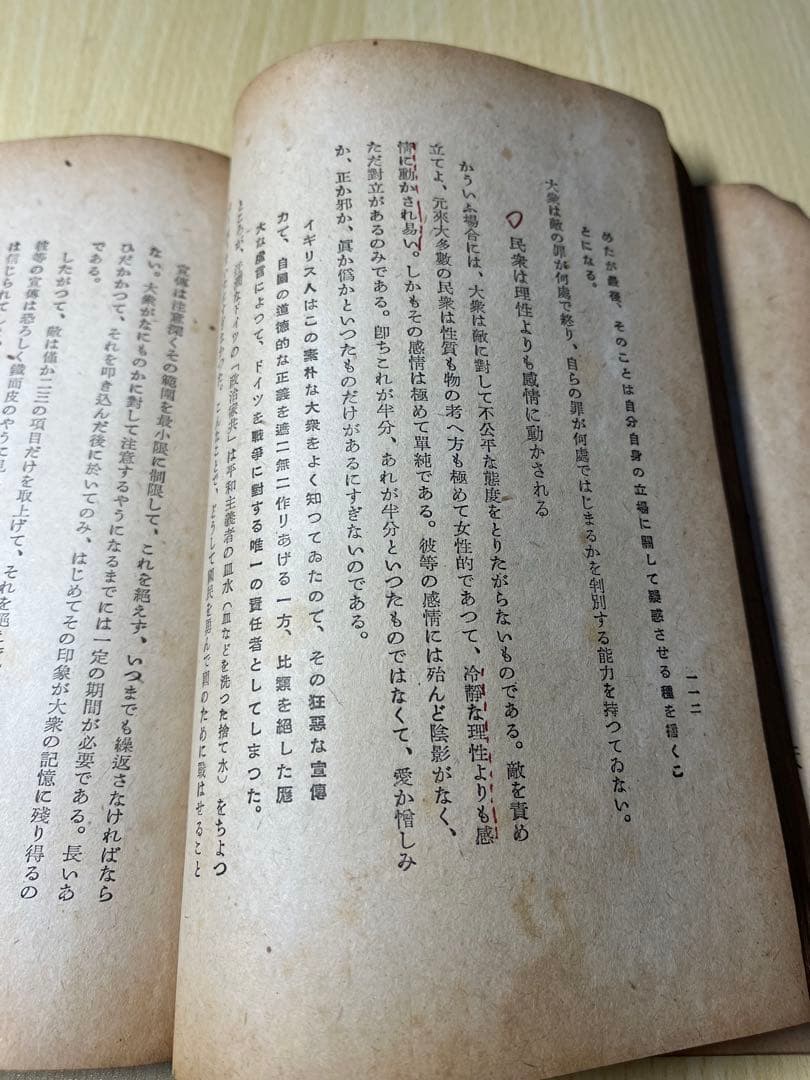 一一二
めたが最後、そのことは自分自身の立場に關して疑惑させる種を播くこ
とになる。
大衆は敵の罪が何處で終り、自らの罪が何處ではじまるかを判別する能力を持つてゐない。
民衆は理性よりも感情に動かされる
かういふ場合には、大衆は敵に對して不公平な態度をとりたがらないものである。敵を責め
立てよ、元來大多數の民衆は性質も物の考へ方も極めて女性的であつて、冷靜な理性よりも感
情に動かされ易い。しかもその感情は極めて單純である。彼等の感情には殆んど陰影がなく、
ただ對立があるのみである。卽ちこれが半分、あれが半分といつたものではなくて、愛か憎しみ
か、正か邪か、眞か僞かといつたものだけがあるにすぎないのである。
イギリス人はこの素朴な大衆をよく知つてゐたので、その狂惡な宣傳
力で、自國の道德的な正義を遮二無二作りあげる一方、比類を絕した厖
大な虛言によつて、ドイツを戰爭に對する唯一の責任者としてしまつた。
ドイツの「政治家共」は平和主義者の血水（血などを洗つた捨て水）をちよつ
どうして國民を勵んで國のために戰はせること
宣傳は注意深くその範圍を最小限に制限して、これを絕えず、いつまでも繰返さなければなら
ない。大衆がなにものかに對して注意するやうになるまでには一定の期間が必要である。長いあ
ひだかかつて、それを叩き込んだ後に於いてのみ、はじめてその印象が大衆の記憶に殘り得るの
である。
したがつて、敵は僅か二三の項目だけを取上げて、それを絕え
彼等の宣傳は恐ろしく鐵面皮のやうに見
は信じられて